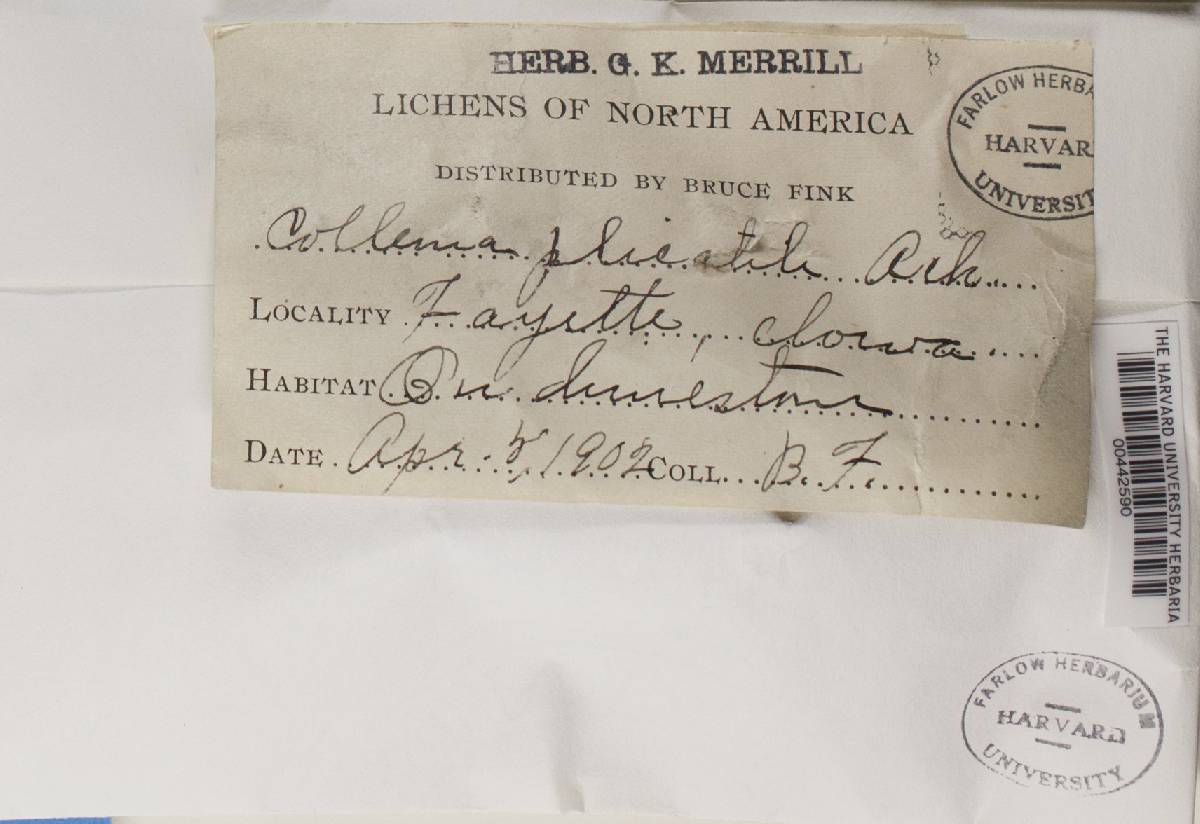 HERB. G. K. MERRILL
LICHENS OF NORTH AMERICA
DISTRIBUTED BY BRUCE FINK
Collema plicatile Ach.
LOCALITY Fayette, Iowa
HABITAT On limestone
DATE Apr. 5, 1902 COLL. B. F.
FARLOW HERBA
HARVAR
UNIVERSIT
THE HARVARD UNIVERSITY HERBARIA
00442590
FARLOW HERBARIUM
HARVARD
UNIVERSITY